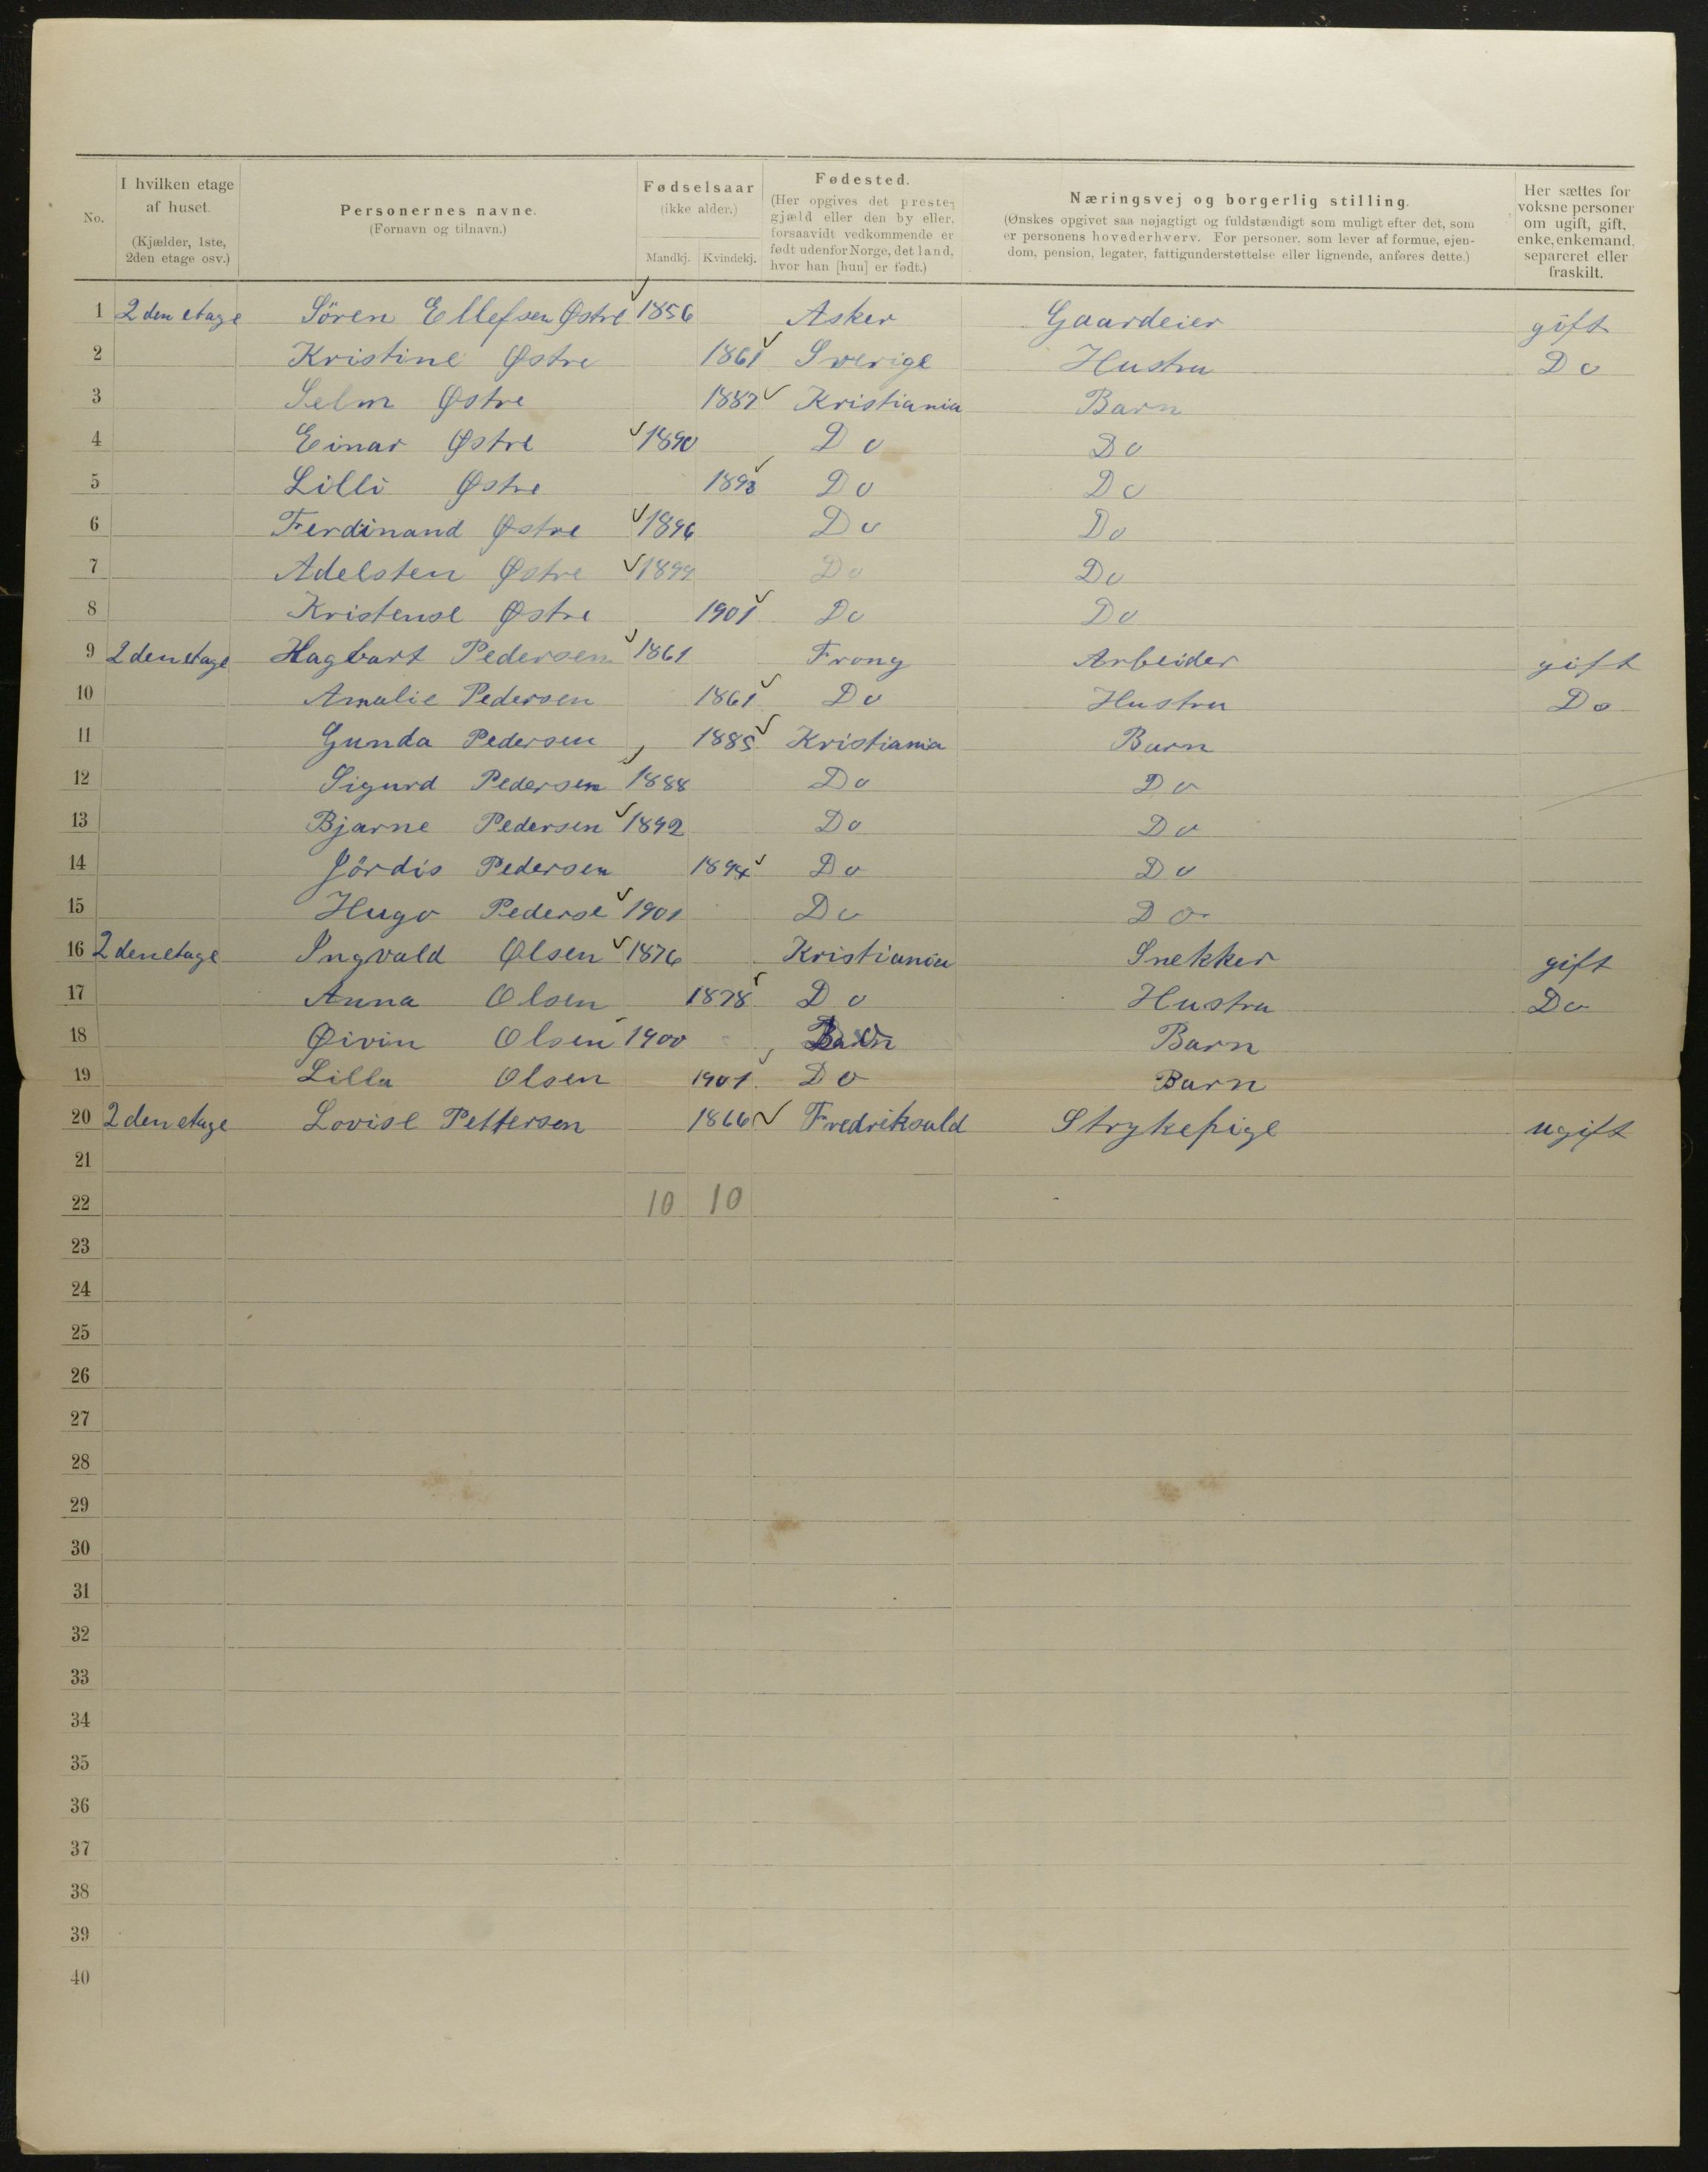 No.
I hvilken etage
af huset.
(Kjælder, 1ste,
2den etage osv.)
Personernes navne.
(Fornavn og tilnavn.)
Fødselsaar
(ikke alder.)
Mandkj. Kvindekj.
Fødested.
(Her opgives det preste-
gjæld eller den by eller,
forsaavidt vedkommende er
født udenfor Norge, det land,
hvor han [hun] er født.)
Næringsvej og borgerlig stilling.
(Ønskes opgivet saa nøjagtigt og fuldstændigt som muligt efter det, som
er personens hovederhverv. For personer, som lever af formue, ejen-
dom, pension, legater, fattigunderstøttelse eller lignende, anføres dette.)
Her sættes for
voksne personer
om ugift, gift,
enke, enkemand,
separeret eller
fraskilt.
1 2den etage Sören Ellefsen Østre 1856 Asker Gaardeier gift
2 Kristine Østre 1861 Sverige Hustru Do
3 Selm Østre 1887 Kristiania Barn
4 Einar Østre 1890 Do Do
5 Lilli Østre 1893 Do Do
6 Ferdinand Østre 1896 Do Do
7 Adelsten Østre 1899 Do Do
8 Kristense Østre 1901 Do Do
9 2den etage Hagbart Pedersen 1861 Frong Arbeider gift
10 Amalie Pedersen 1861 Do Hustru Do
11 Gunda Pedersen 1885 Kristiania Barn
12 Sigurd Pedersen 1888 Do Do
13 Bjarne Pedersen 1892 Do Do
14 Jördis Pedersen 1894 Do Do
15 Hugo Pederse 1901 Do Do
16 2den etage Ingvald Olsen 1876 Kristiania Snekker gift
17 Anna Olsen 1878 Do Hustru Do
18 Øivin Olsen 1900 Barn
19 Lilla Olsen 1901 Do Barn
20 2den etage Lovise Pettersen 1866 Fredriksald Strykepige ugift
21
22 10 10
23
24
25
26
27
28
29
30
31
32
33
34
35
36
37
38
39
40